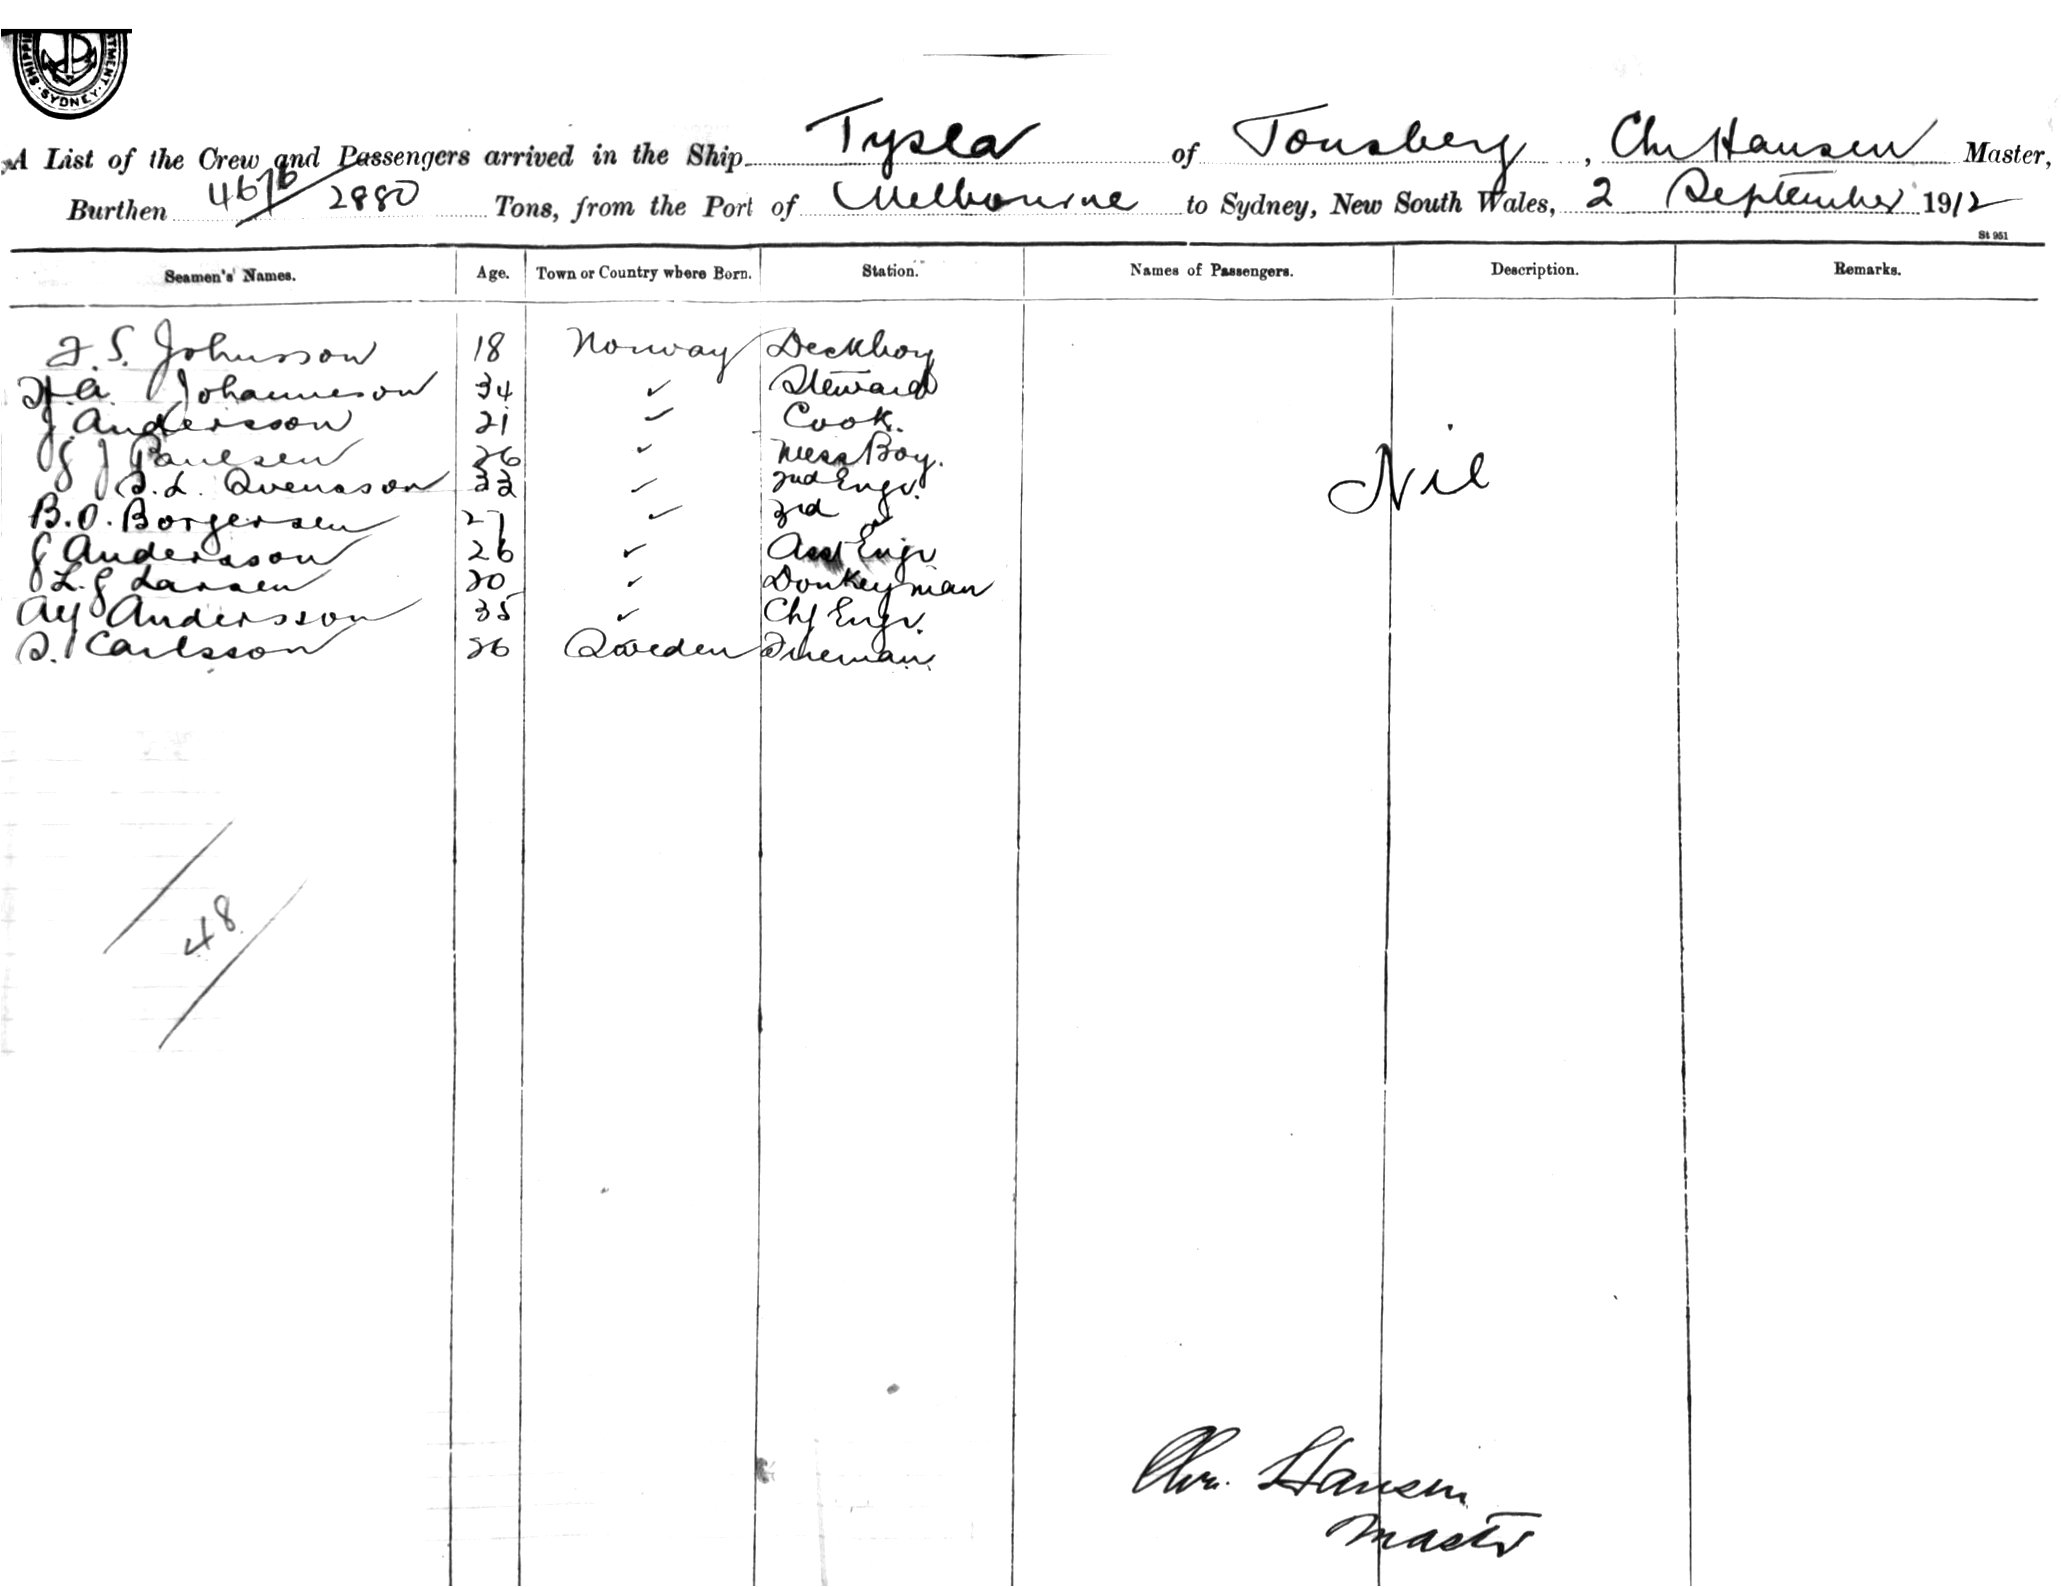 SHIPPI TMENT · SYDNEY ·
A List of the Crew and Passengers arrived in the Ship Tysla of Tonsberg, Chr Hansen Master,
Burthen 4676 / 2880 Tons, from the Port of Melbourne to Sydney, New South Wales, 2 September 1912
St 951
Seamen's Names. Age. Town or Country where Born. Station. Names of Passengers. Description. Remarks.
F. S. Johnsson 18 Norway Deckboy
H. A. Johanneson 34 ✓ Steward
J. Andersson 21 ✓ Cook.
J Paulsen 26 ✓ Mess Boy.
S. L. Svensson 33 ✓ 2nd Engr.
Nil
B. O. Borgersen 27 ✓ 3rd
J Andersson 26 ✓ Asst Engr
L. J Larsen 20 ✓ Donkeyman
Andersson 35 ✓ Chf Engr.
S. Carlsson 26 Sweden Fireman
48
Chr. Hansen
Master